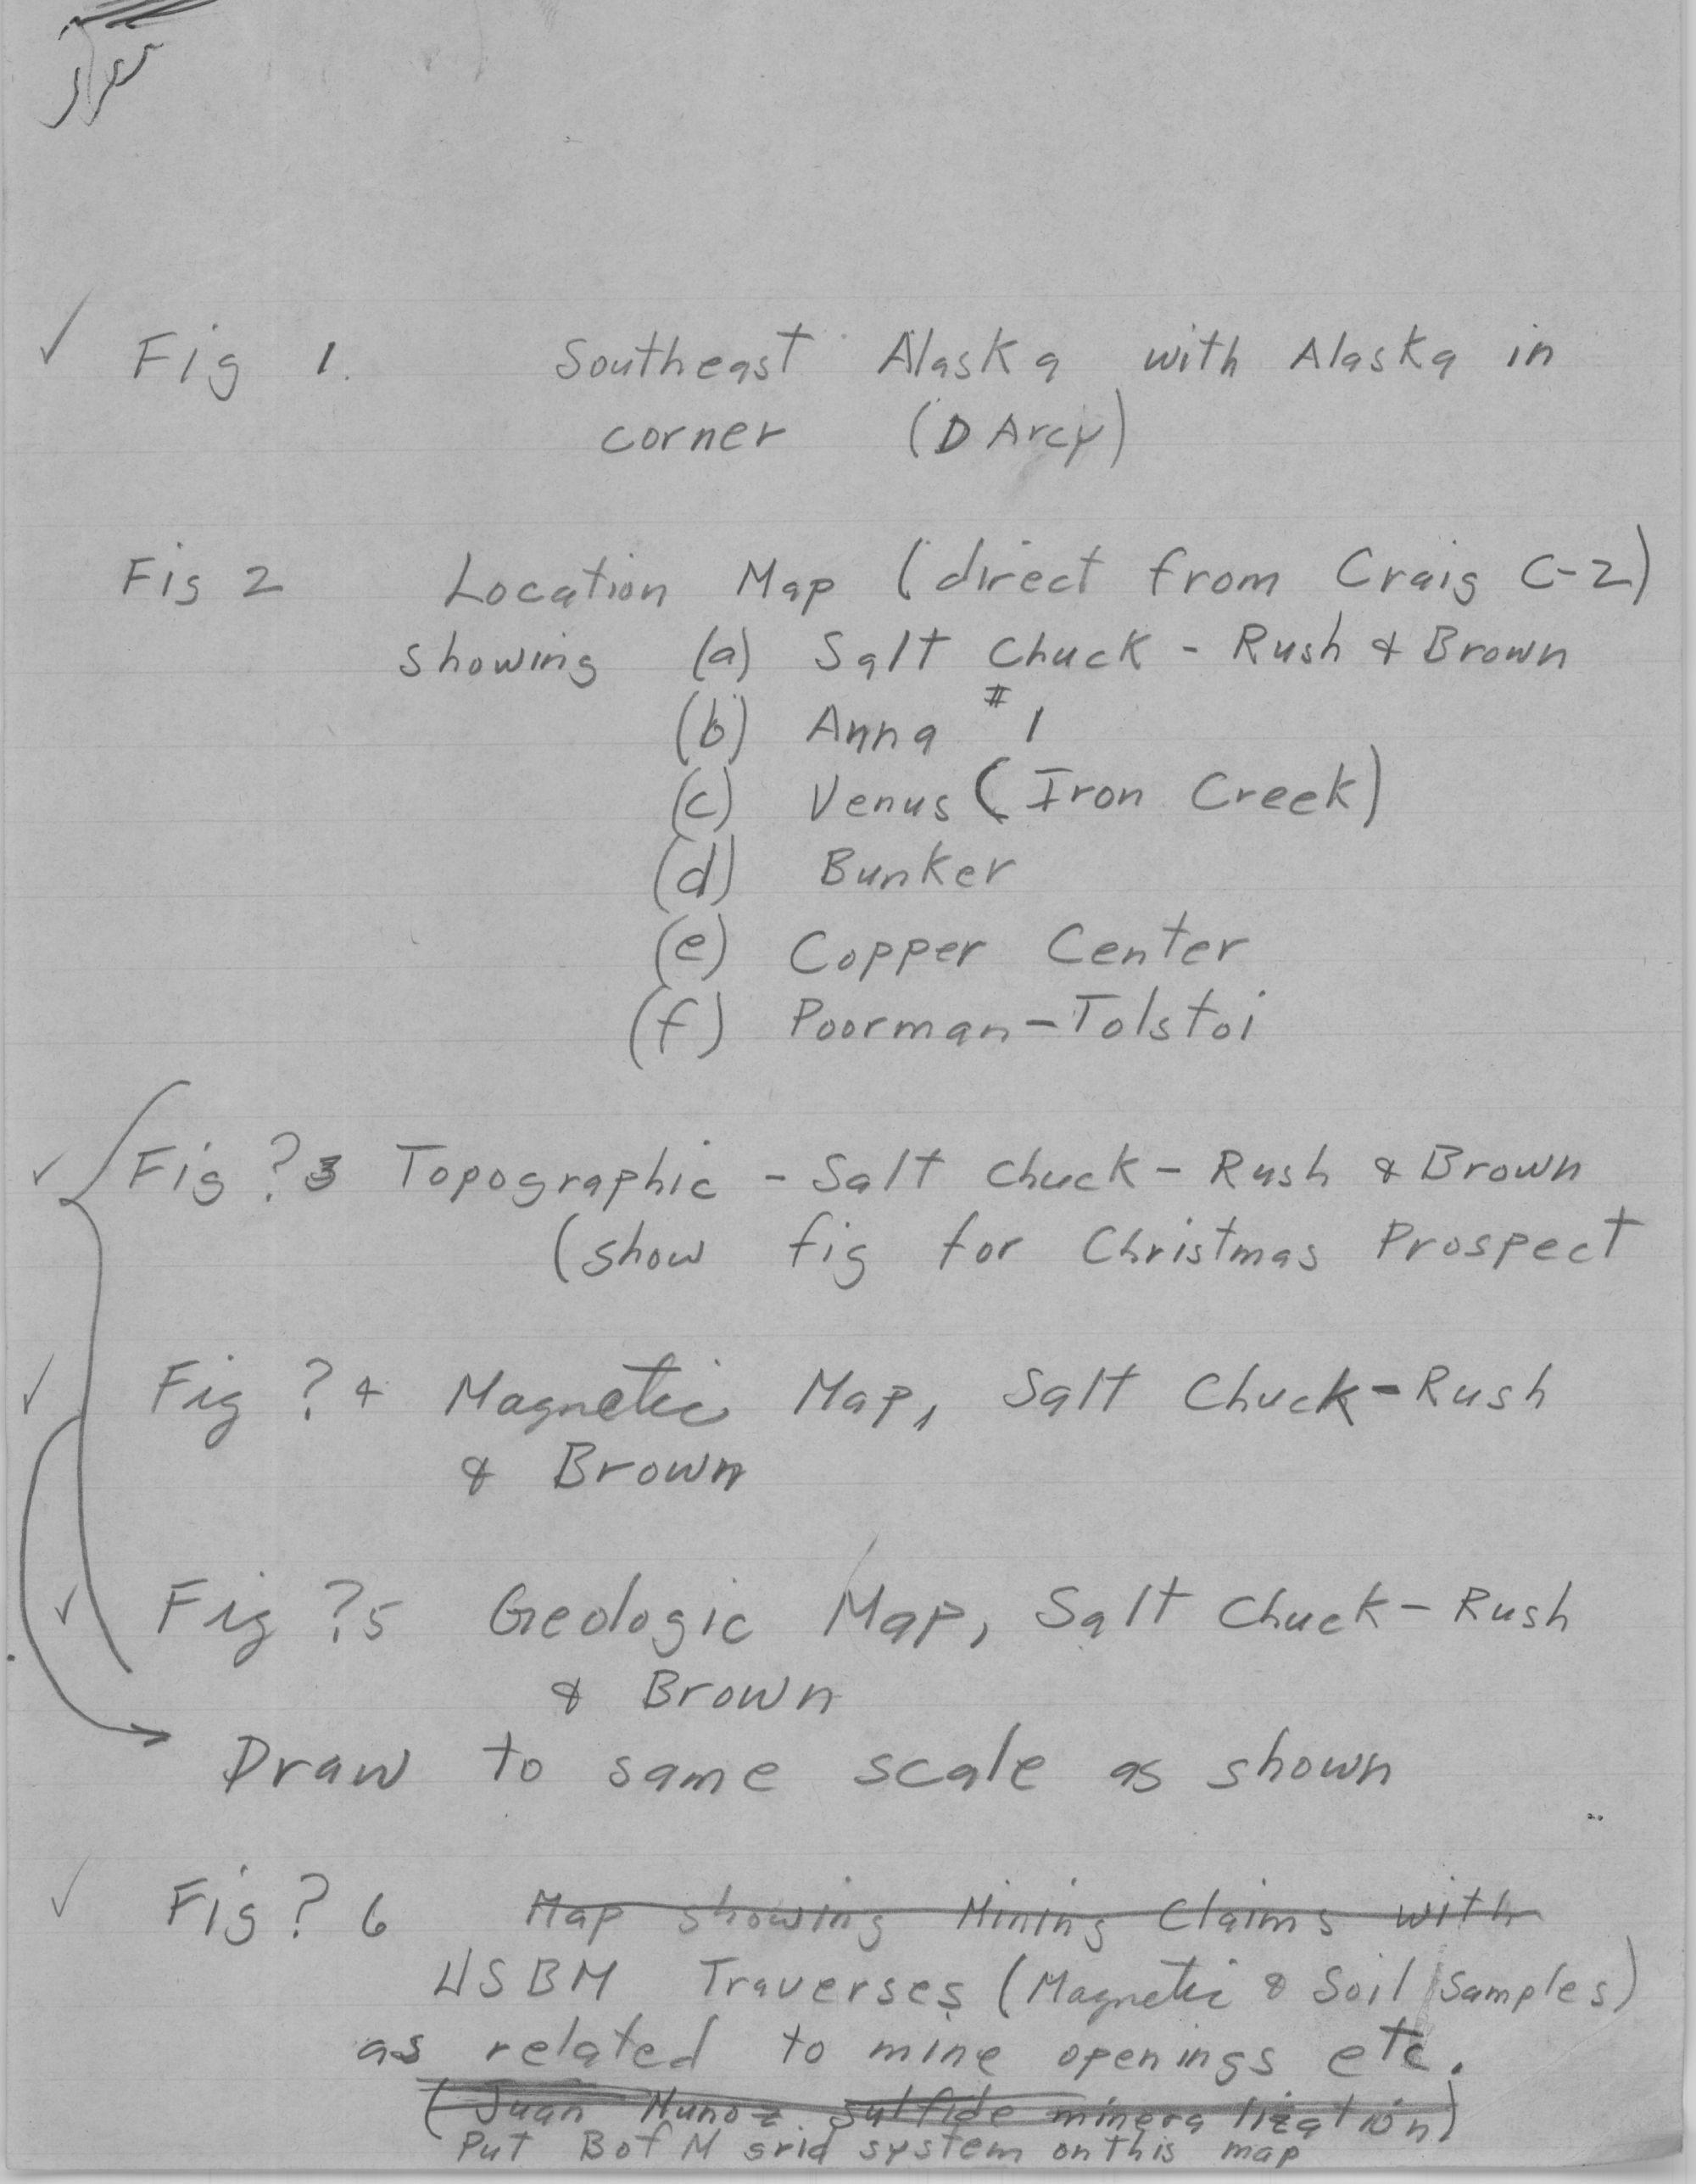 Fig 1. Southeast Alaska with Alaska in
corner (D Arcy)
Fig 2 Location Map (direct from Craig C-2)
showing (a) Salt Chuck - Rush & Brown
(b) Anna #1
(c) Venus (Iron Creek)
(d) Bunker
(e) Copper Center
(f) Poorman-Tolstoi
Fig ? 3 Topographic - Salt Chuck - Rush & Brown
(show fig for Christmas Prospect
Fig ? 4 Magnetic Map, Salt Chuck - Rush
& Brown
Fig ? 5 Geologic Map, Salt Chuck - Rush
& Brown
Draw to same scale as shown
Fig ? 6 Map showing Mining Claims with
USBM Traverses (Magnetic & Soil Samples)
as related to mine openings etc.
(Juan Munoz sulfide mineralization)
Put B of M grid system on this map